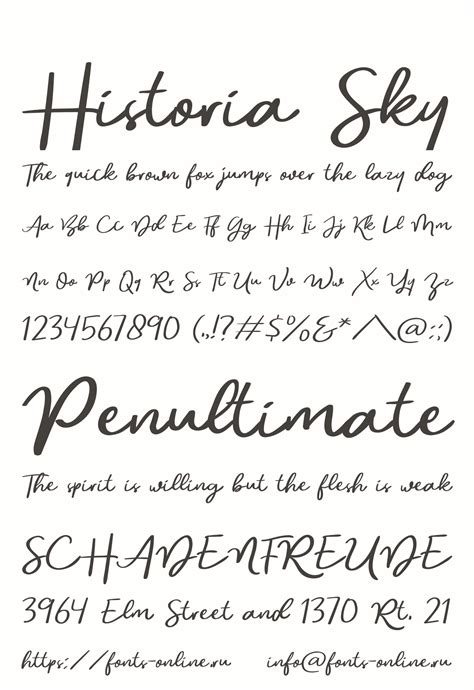 Historia Sky
The quick brown fox jumps over the lazy dog
Aa Bb Cc Dd Ee Ff Gg Hh Ii Jj Kk Ll Mm
Nn Oo Pp Qq Rr Ss Tt Uu Vv Ww Xx Yy Zz
1234567890 (.,!?#$%&*/\@:;)
Penultimate
The spirit is willing but the flesh is weak
SCHADENFREUDE
3964 Elm Street and 1370 Rt. 21
https://fonts-online.ru info@fonts-online.ru